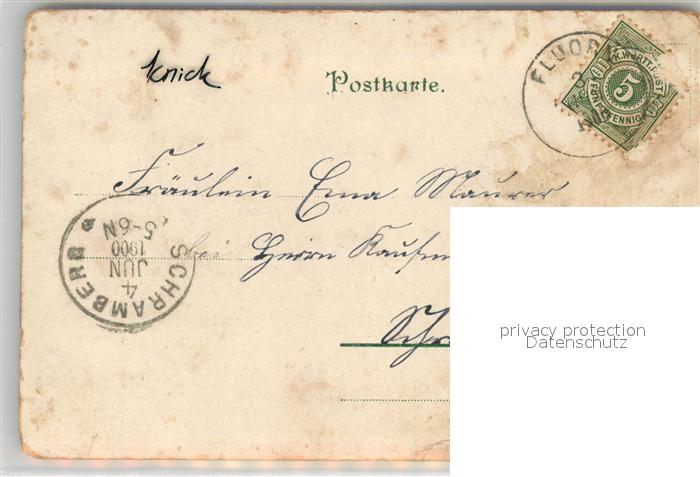 Knick
Postkarte.
FLUORN
K.WÜRTT.POST
5
FÜNF PFENNIG
Fräulein Ema Maurer
bei Herrn Kaufm
Schr
SCHRAMBERG
4
JUN
1900
5-6N
privacy protection
Datenschutz